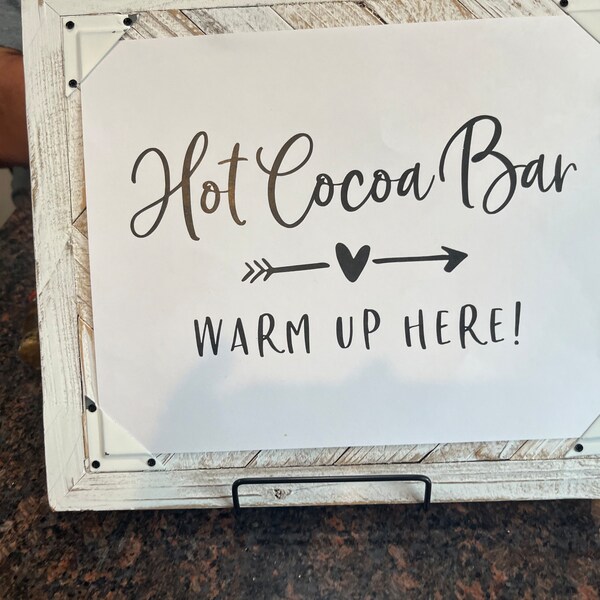 Hot Cocoa Bar
WARM UP HERE!